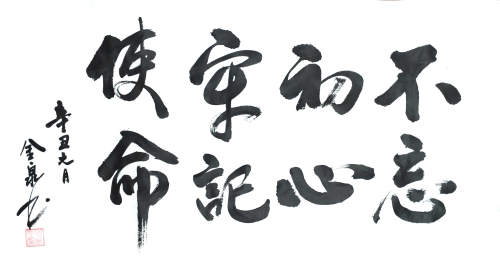 不忘
初心
牢记
使命
辛丑元月
金泉书